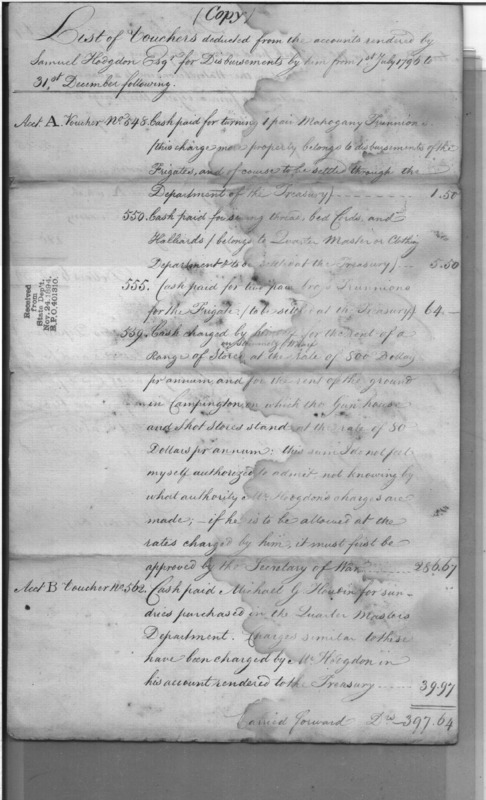 (Copy)
List of Vouchers deducted from the accounts rendered by
Samuel Hodgdon Esqr. for Disbursements by him from 1st July 1795 to
31st December following.
Acct. A Voucher No. 548. Cash paid for turning 1 pair Mahogany Trunnions
(this charge more properly belongs to disbursements of the
Frigates, and of course to be settled through the
Department of the Treasury) 1.50
550. Cash paid for bed Cords, and
Halliards (belongs to Quarter Master or Clothing
Department & to be settled at the Treasury) 5.50
555. Cash paid for two pair Trunnions
for the Frigate (to be settled at the Treasury) 64.—
559. Cash charged by for the rent of a
Range of Stores at the rate of 500 Dollars
pr annum, and for the rent of the ground
in Campington on which the Gun house
and Shot Stores stand at the rate of 80
Dollars pr annum: this sum I do not feel
myself authorized to admit, not knowing by
what authority Mr. Hodgdon's charges are
made; – if he is to be allowed at the
rates charged by him, it must first be
approved by the Secretary of War 286.67
Acct B Voucher No. 562. Cash paid Michael G. for sun-
dries purchased in the Quarter Masters
Department. Charges similar to these
have been charged by Mr. Hodgdon in
his account rendered to the Treasury 39.97
Carried forward Drs 397.64
Received
from
State Dep't,
Nov. 24, 1894.
R.P.O. 401310.